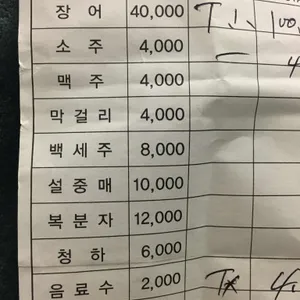 장 어 40,000
소 주 4,000
맥 주 4,000
막 걸 리 4,000
백 세 주 8,000
설 중 매 10,000
복 분 자 12,000
청 하 6,000
음 료 수 2,000